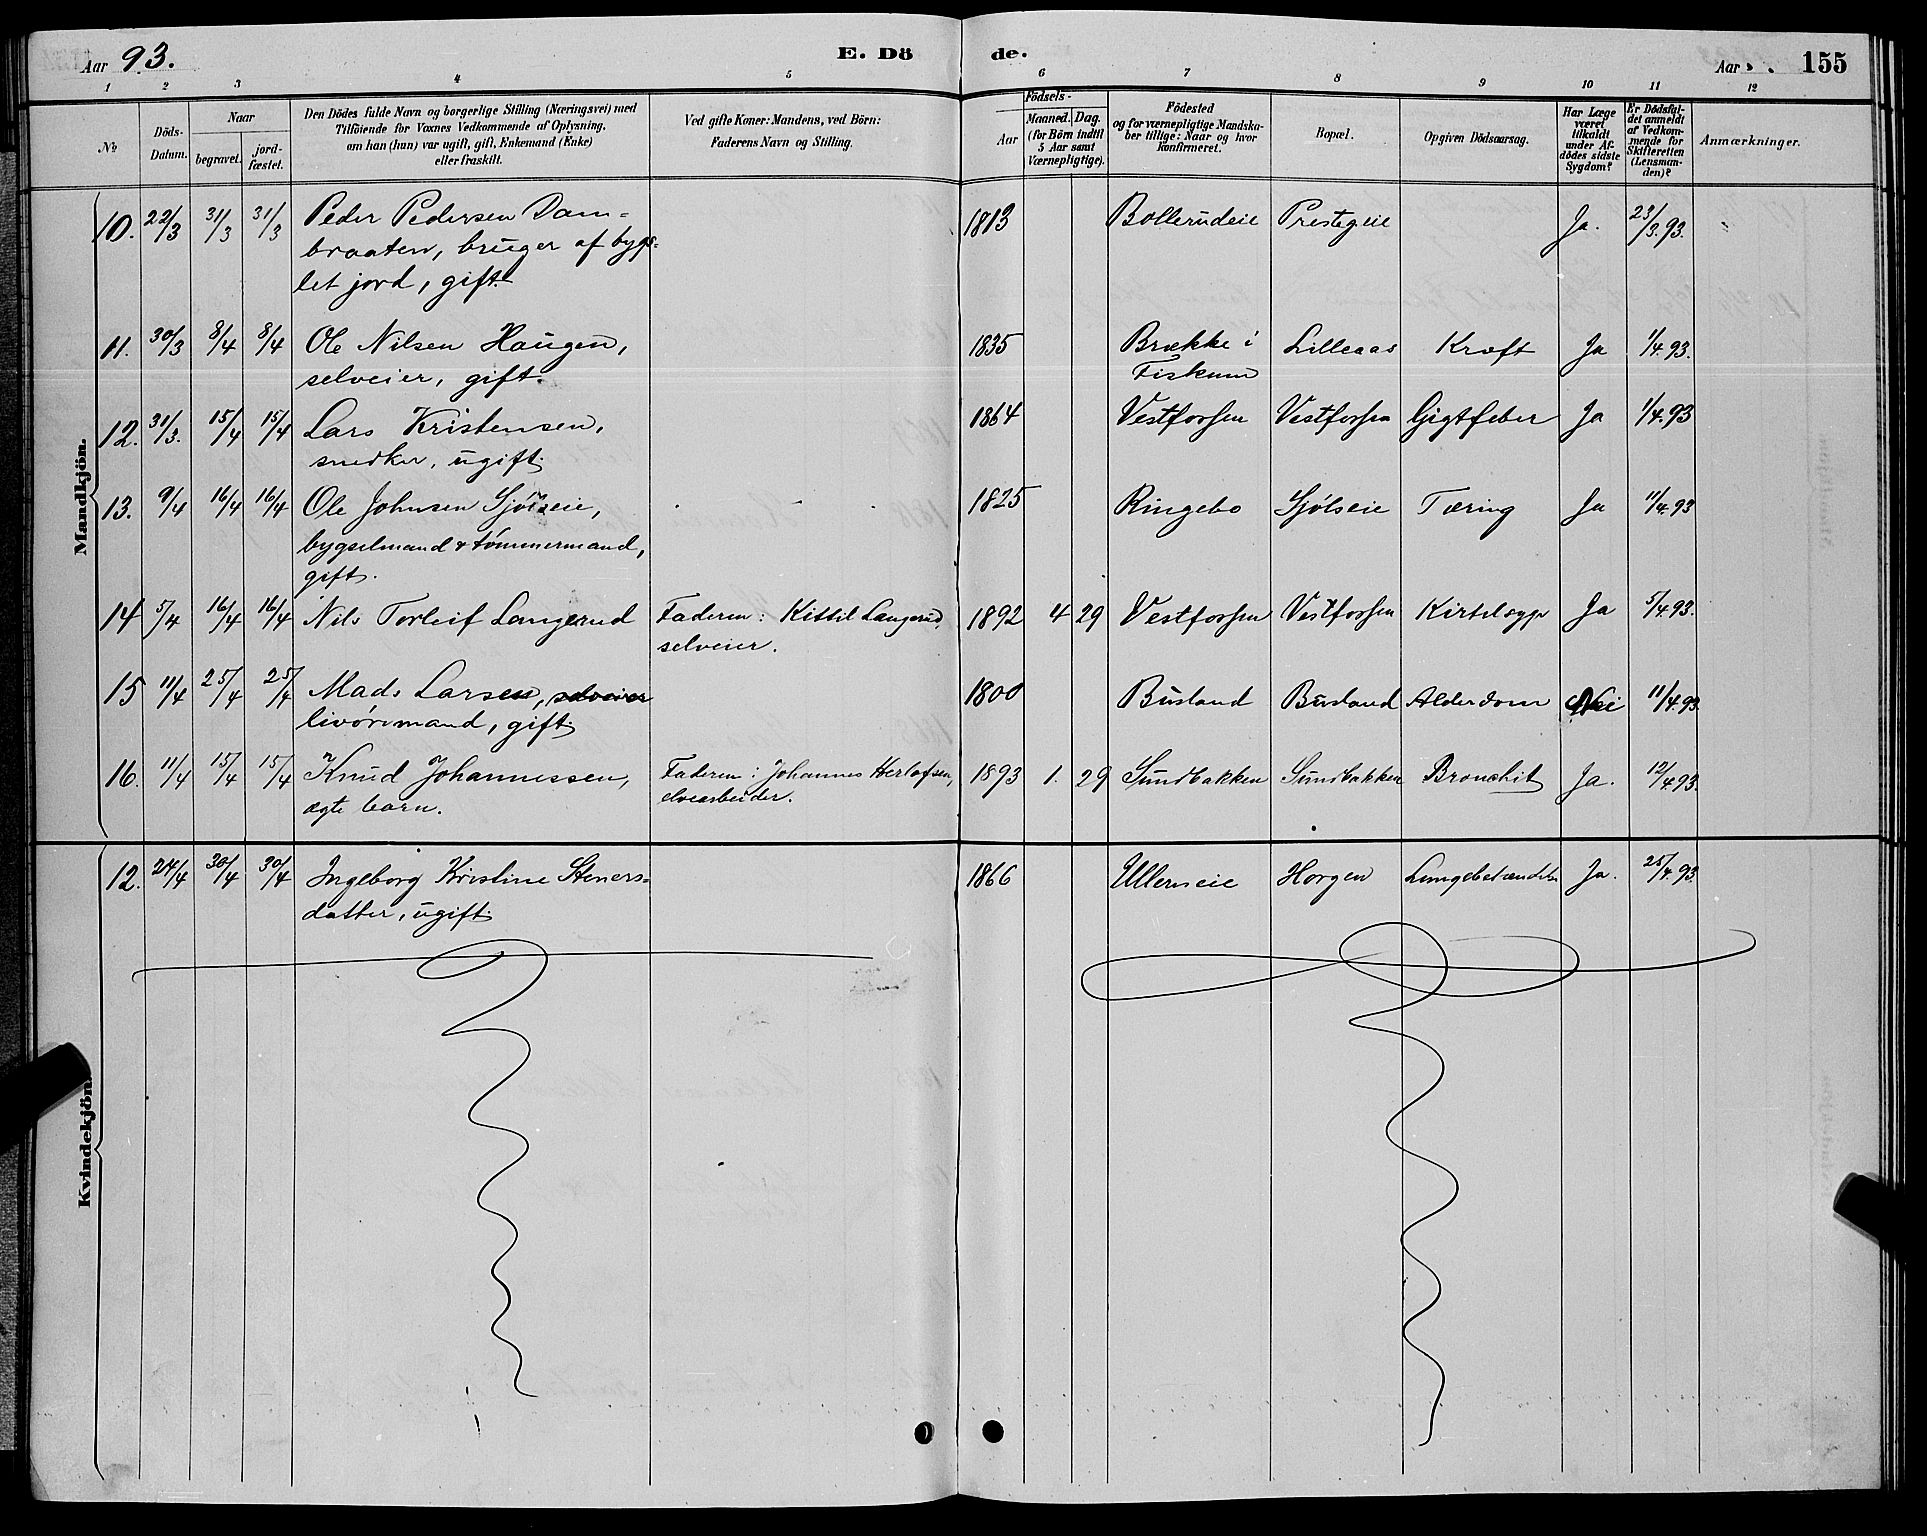 Aar 93.
E. Dö
de.
Aar
155
1 2 3 4 5 6 7 8 9 10 11 12
No
Döds-
Datum.
Naar
begravet.
jord-
fæstet.
Den Dödes fulde Navn og borgerlige Stilling (Næringsvei) med
Tilföiende for Voxnes Vedkommende af Oplysning,
om han (hun) var ugift, gift, Enkemand (Enke)
eller fraskilt.
Ved gifte Koner: Mandens, ved Börn:
Faderens Navn og Stilling.
Födsels-
Aar
Maaned. Dag.
(for Börn indtil
5 Aar samt
Værnepligtige).
Födested
og for værnepligtige Mandska-
ber tillige: Naar og hvor
konfirmeret.
Bopæl.
Opgiven Dödsaarsag.
Har Læge
været
tilkaldt
under Af-
dödes sidste
Sygdom?
Er Dödsfal-
det anmeldt
af Vedkom-
mende for
Skifteretten
(Lensman-
den)?
Anmærkninger.
Mandkjön.
10. 22/3 31/3 31/3 Peder Pedersen Dam- 1813 Bollerudeie Prestegeie Ja. 23/3.93. "
braaten, bruger af bygs-
let jord, gift.
11. 30/3 8/4 8/4 Ole Nilsen Haugen, 1835 Brække i Lilleaas Kræft Ja 1/4.93.
selveier, gift. Fiskum
12. 31/3. 15/4 15/4 Lars Kristensen, 1864 Vestfossen Vestfossen Gigtfeber Ja 1/4.93
snedker, ugift.
13. 9/4 16/4 16/4 Ole Johnsen Sjölseie, 1825 Ringebo Sjölseie Tæring Ja 11/4.93
bygselmand & tömmermand,
gift.
14 5/4 16/4 16/4 Nils Torleif Langerud Faderen: Kittil Langerud, 1892 4 29 Vestfossen Vestfossen Kirtelsyge Ja 5/4.93.
selveier.
15 11/4 25/4 25/4 Mads Larsen, selveier 1800 Busland Busland Alderdom Nei 11/4.93.
livöremand, gift.
16. 11/4 15/4 15/4 Knud Johannessen, Faderen: Johannes Herlofsen, 1893 1. 29 Sundbakken Sundbakken Bronchit Ja. 12/4.93.
ægte barn. elvearbeider.
Kvindekjön.
12. 24/4 30/4 30/4 Ingeborg Kristine Steners- 1866 Ullerneie Horgen Lungebetændelse Ja. 25/4.93.
datter, ugift.